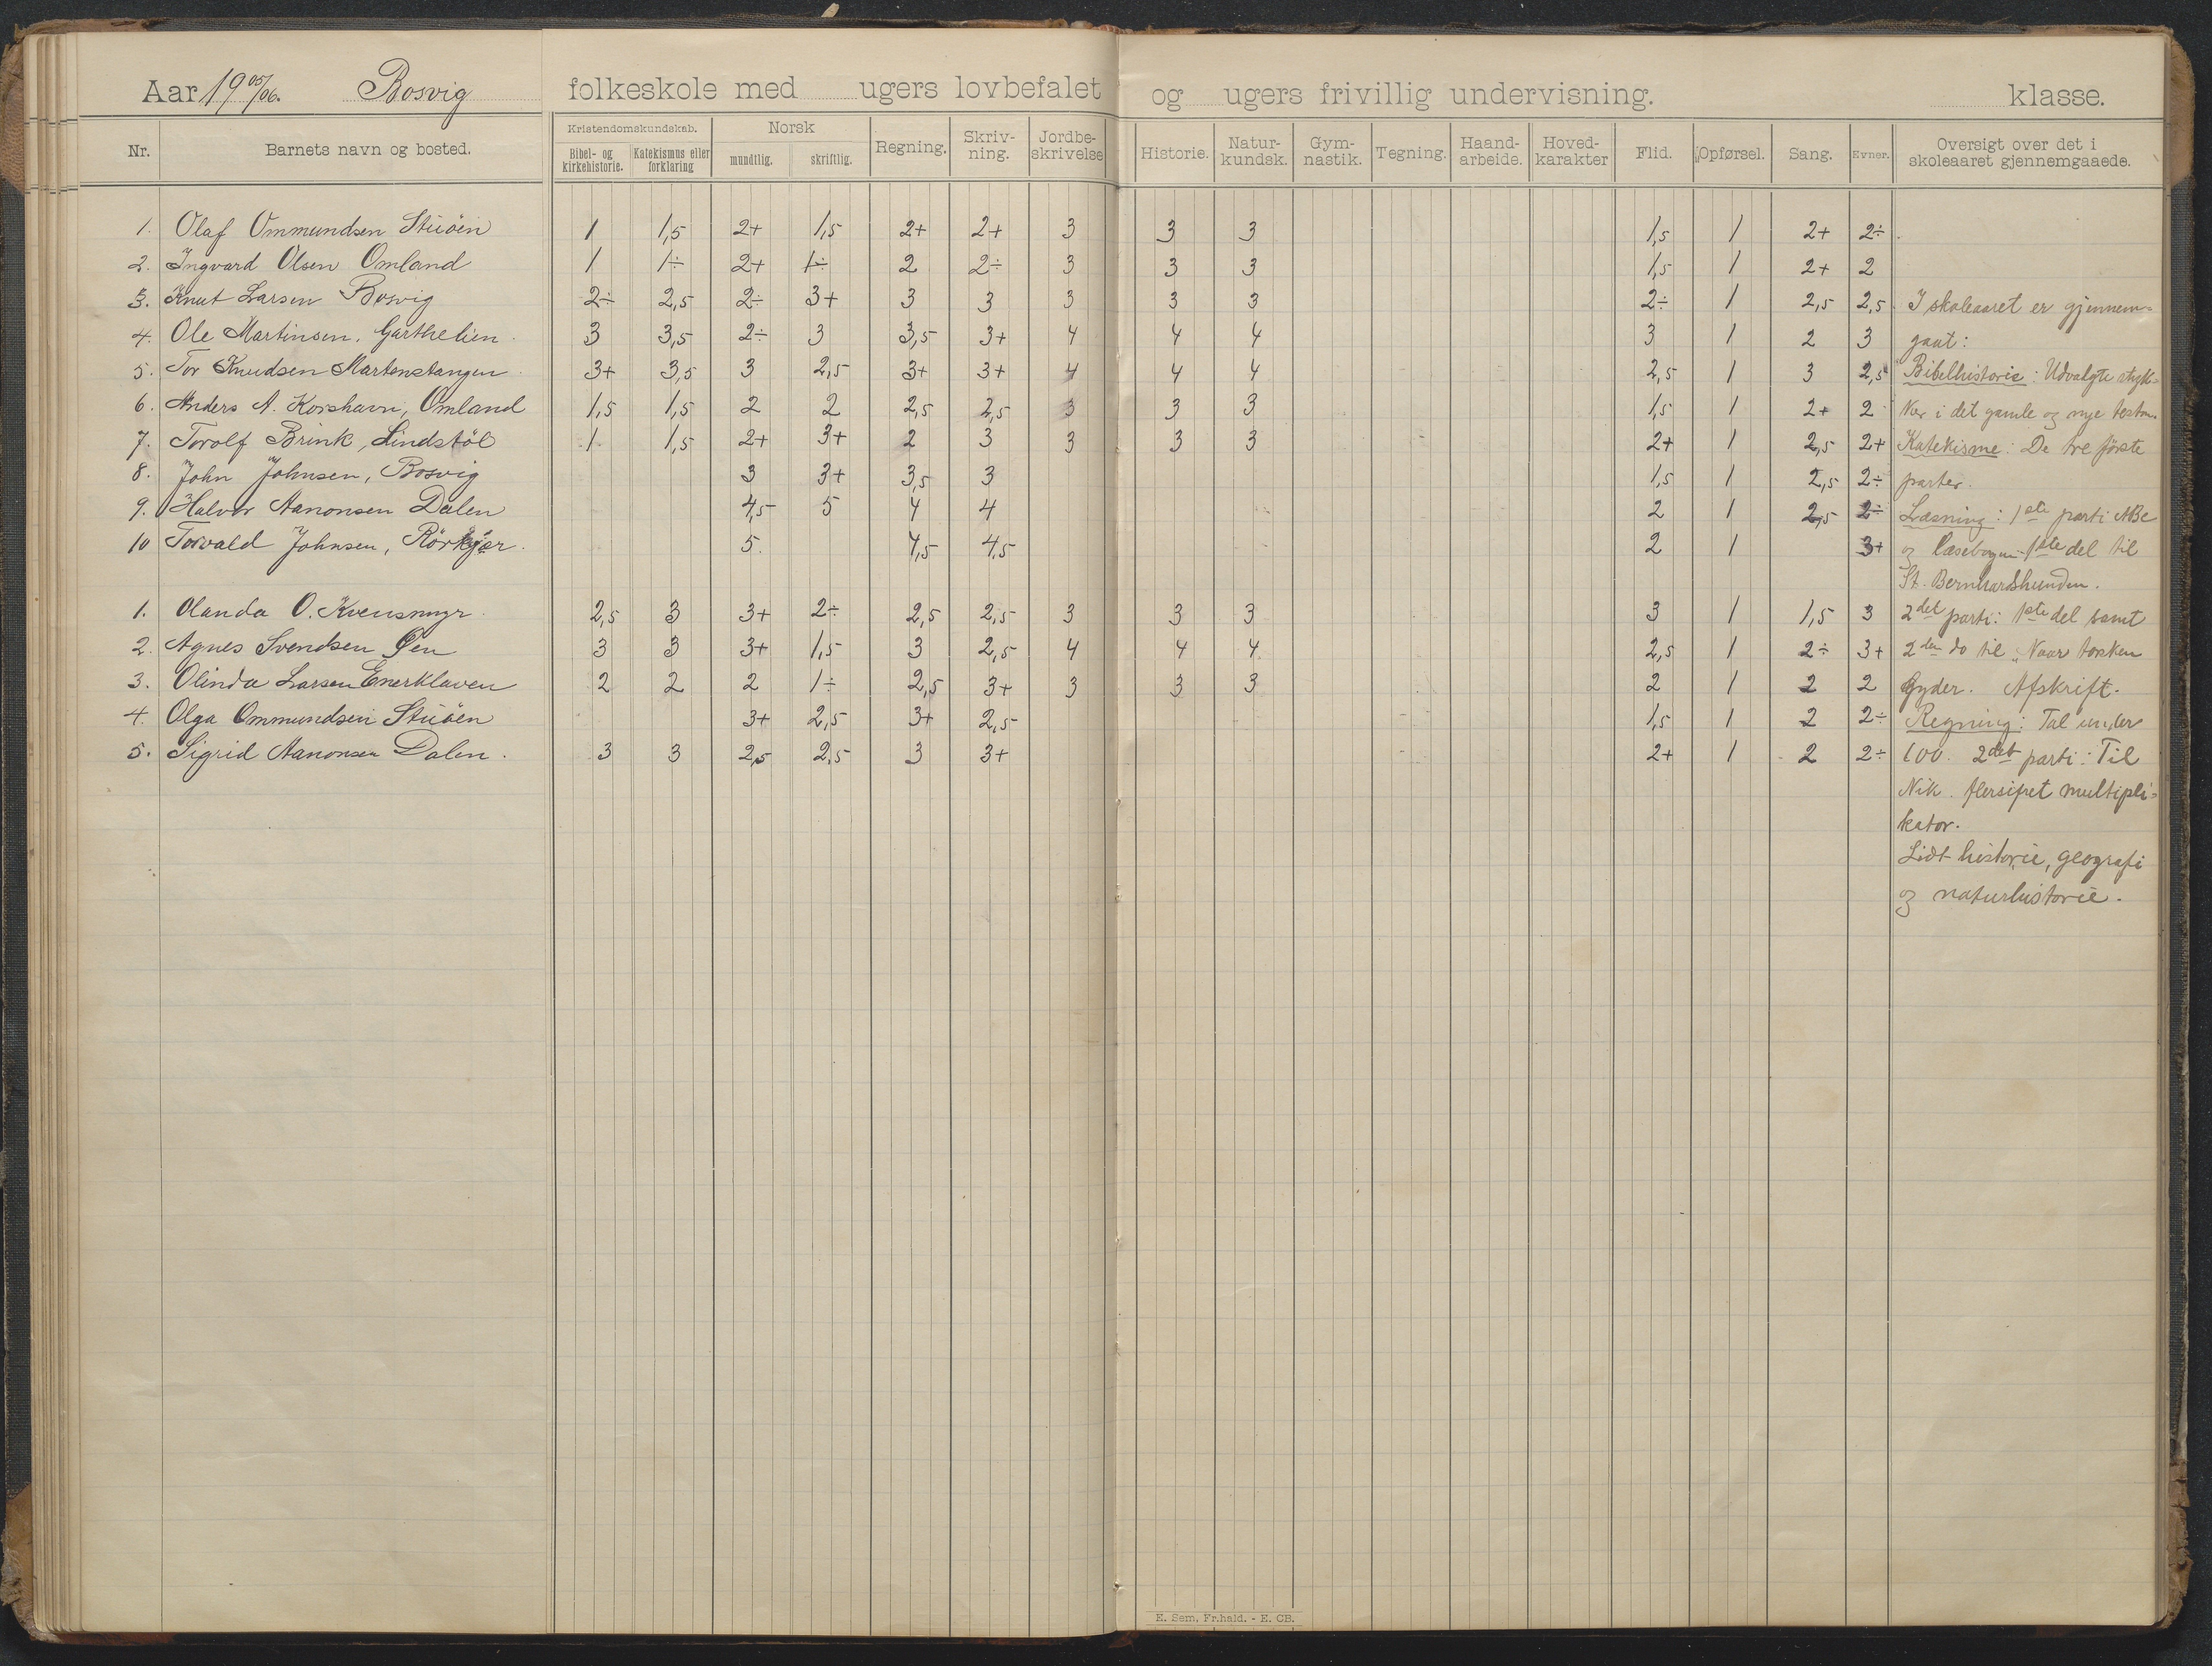 Aar 19 05/06. Bosvig folkeskole med ugers lovbefalet og ugers frivillig undervisning. klasse.
Nr. Barnets navn og bosted. Kristendomskundskab. Bibel- og kirkehistorie. Katekismus eller forklaring Norsk mundtlig. skriftlig. Regning. Skriv-ning. Jordbe-skrivelse Historie. Natur-kundsk. Gym-nastik. Tegning. Haand-arbeide. Hoved-karakter Flid. Opførsel. Sang. Evner. Oversigt over det i skoleaaret gjennemgaaede.
1. Olaf Ommundsen Stuöen 1 1,5 2+ 1,5 2+ 2+ 3 3 3 1,5 1 2+ 2÷
2. Ingvard Olsen Omland 1 1÷ 2+ 1÷ 2 2÷ 3 3 3 1,5 1 2+ 2
3. Knut Larsen Bosvig 2÷ 2,5 2÷ 3+ 3 3 3 3 3 2÷ 1 2,5 2,5 I skoleaaret er gjennem-
4. Ole Martinsen, Garthelien 3 3,5 2÷ 3 3,5 3+ 4 4 4 3 1 2 3 gaat:
5. Tor Knudsen Martenstangen 3+ 3,5 3 2,5 3+ 3+ 4 4 4 2,5 1 3 2,5 Bibelhistorie: Udvalgte styk-
6. Anders A. Korshavn, Omland 1,5 1,5 2 2 2,5 2,5 3 3 3 1,5 1 2+ 2 ker i det gamle og nye testm.
7. Torolf Brink, Lindstöl 1 1,5 2+ 3+ 2 3 3 3 3 2+ 1 2,5 2+ Katekisme: De tre förste
8. John Johnsen, Bosvig 3 3+ 3,5 3 1,5 1 2,5 2÷ parter.
9. Halvor Aanonsen Dalen 4,5 5 4 4 2 1 2,5 2÷ Læsning: 1ste parti ABC
10 Torvald Johnsen, Rörkjær. 5. 4,5 4,5 2 1 3+ og læsebogen 1ste del til
St. Bernhardshunden.
1. Olanda O. Kvensmyr 2,5 3 3+ 2÷ 2,5 2,5 3 3 3 3 1 1,5 3 2det parti: 1ste del samt
2. Agnes Svendsen Øen 3 3 3+ 1,5 3 2,5 4 4 4 2,5 1 2÷ 3+ 2den do til „Naar torsken
3. Olinda Larsen Enerklaven 2 2 2 1÷ 2,5 3+ 3 3 3 2 1 2 2 gyder. Afskrift.
4. Olga Ommundsen Stuöen 3+ 2,5 3+ 2,5 1,5 1 2 2÷ Regning: Tal under
5. Sigrid Aanonsen Dalen. 3 3 2,5 2,5 3 3+ 2+ 1 2 2÷ 100. 2det parti: Til
Nik. flersifret multipli-
kator.
Lidt historie, geografi
og naturhistorie.
E. Sem, Fr.hald. - E. CB.